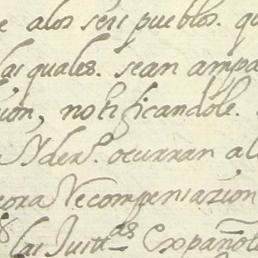 e alos seis pueblos. qu
las quales. sean ampa
ion, notificandole.
Yder.º ocurran al
eora Recompensazion
las Justt.as Españole